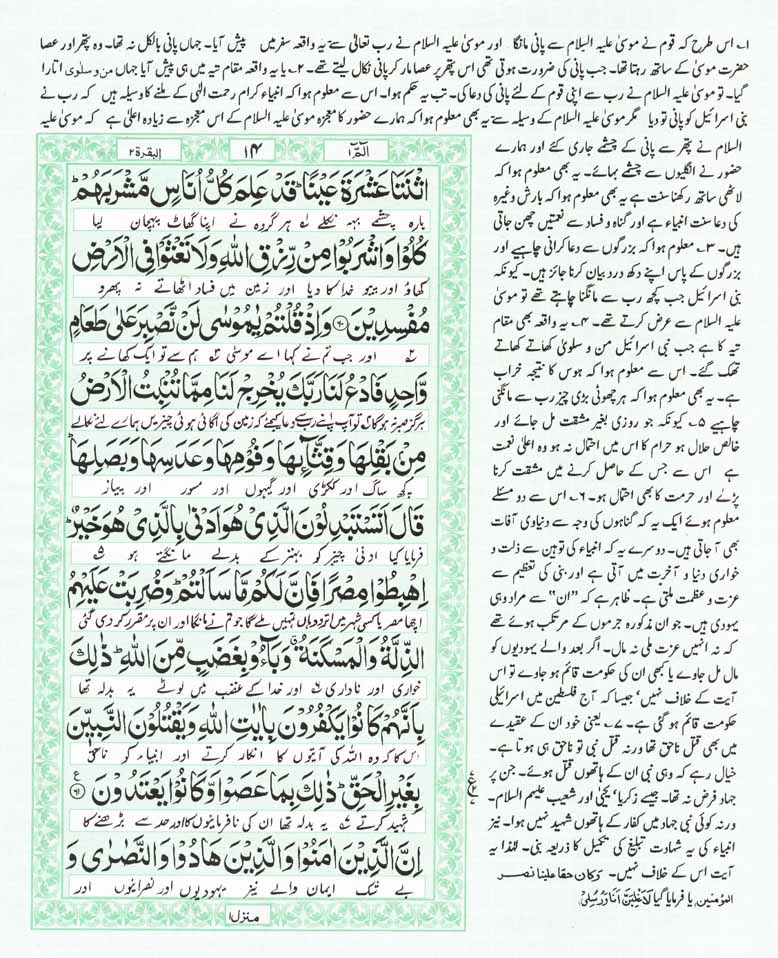 ۱۔ اس طرح کہ قوم نے موسیٰ علیہ السلام سے پانی مانگا اور موسیٰ علیہ السلام نے رب تعالیٰ سے یہ واقعہ سفر میں پیش آیا۔ جہاں پانی بالکل نہ تھا۔ وہ پتھر اور عصا
حضرت موسیٰ کے ساتھ رہتا تھا۔ جب پانی کی ضرورت ہوتی تھی اس پتھر پر عصا مار کر پانی نکال لیتے تھے۔ ۲۔ یا یہ واقعہ مقام تیہ میں ہی پیش آیا جہاں من و سلویٰ اتارا
گیا۔ تو موسیٰ علیہ السلام نے رب سے اپنی قوم کے لئے پانی کی دعا کی۔ تب یہ حکم ہوا۔ اس سے معلوم ہوا کہ انبیاء کرام رحمت الٰہی کے ملنے کا وسیلہ ہیں کہ رب نے
بنی اسرائیل کو پانی تو دیا مگر موسیٰ علیہ السلام کے وسیلہ سے یہ بھی معلوم ہوا کہ ہمارے حضور کا معجزہ موسیٰ علیہ السلام کے اس معجزہ سے زیادہ اعلیٰ ہے کہ موسیٰ علیہ
السلام نے پتھر سے پانی کے چشمے جاری کئے اور ہمارے
حضور نے انگلیوں سے چشمے بہائے۔ یہ بھی معلوم ہوا کہ
لاٹھی ساتھ رکھنا سنت ہے یہ بھی معلوم ہوا کہ بارش وغیرہ
کی دعا سنت انبیاء ہے اور گناہ و فساد سے نعمتیں چھن جاتی
ہیں۔ ۳۔ معلوم ہوا کہ بزرگوں سے دعا کرانی چاہیے اور
بزرگوں کے پاس اپنے دکھ درد بیان کرنا جائز ہیں۔ کیونکہ
بنی اسرائیل جب کچھ رب سے مانگنا چاہتے تھے تو موسیٰ
علیہ السلام سے عرض کرتے تھے۔ ۴۔ یہ واقعہ بھی مقام
تیہ کا ہے جب نبی اسرائیل من و سلویٰ کھاتے کھاتے
تھک گئے۔ اس سے معلوم ہوا کہ ہوس کا نتیجہ خراب
ہے۔ یہ بھی معلوم ہوا کہ ہر چھوٹی بڑی چیز رب سے مانگنی
چاہیے ۵۔ کیونکہ جو روزی بغیر مشقت مل جائے اور
خالص حلال ہو حرام کا اس میں احتمال نہ ہو وہ اعلیٰ نعمت
ہے اس سے جس کے حاصل کرنے میں مشقت کرنا
پڑے اور حرمت کا بھی احتمال ہو۔ ۶۔ اس سے دو مسئلے
معلوم ہوئے ایک یہ کہ گناہوں کی وجہ سے دنیاوی آفات
بھی آ جاتی ہیں۔ دوسرے یہ کہ انبیاء کی توہین سے ذلت و
خواری دنیا و آخرت میں آتی ہے اور نبی کی تعظیم سے
عزت و عظمت ملتی ہے۔ ظاہر ہے کہ "ان" سے مراد وہی
یہودی ہیں۔ جو ان مذکورہ جرموں کے مرتکب ہوئے تھے
کہ نہ انہیں عزت ملی نہ مال۔ اگر بعد والے یہودیوں کو
مال مل جاوے یا کبھی ان کی حکومت قائم ہو جاوے تو اس
آیت کے خلاف نہیں' جیسا کہ آج فلسطین میں اسرائیلی
حکومت قائم ہو گئی ہے۔ ۷۔ یعنی خود ان کے عقیدے
میں بھی قتل ناحق تھا ورنہ قتل نبی تو ناحق ہی ہوتا ہے۔
خیال رہے کہ وہی نبی ان کے ہاتھوں قتل ہوئے۔ جن پر
جہاد فرض نہ تھا۔ جیسے زکریا' یحییٰ اور شعیب علیہم السلام۔
ورنہ کوئی نبی جہاد میں کفار کے ہاتھوں شہید نہیں ہوا۔ نیز
انبیاء کی یہ شہادت تبلیغ کی تکمیل کا ذریعہ بنی۔ لہٰذا یہ
آیت اس کے خلاف نہیں۔ وکان حقا علینا نصر
المؤمنین یا فرمایا گیا لَاَغْلِبَنَّ اَنَا وَرُسُلِیْ
الٓمّٓ ۱ ۱۴ البقرة ۲
اثْنَتَا عَشْرَةَ عَيْنًا ؕ قَدْ عَلِمَ كُلُّ اُنَاسٍ مَّشْرَبَهُمْ ؕ
بارہ چشمے بہہ نکلے ۲ ہر گروہ نے اپنا گھاٹ پہچان لیا
كُلُوْا وَاشْرَبُوْا مِنْ رِّزْقِ اللّٰهِ وَلَا تَعْثَوْا فِي الْاَرْضِ
کھاؤ اور پیو خدا کا دیا اور زمین میں فساد اٹھاتے نہ پھرو
مُفْسِدِيْنَ ۶۰ وَاِذْ قُلْتُمْ يٰمُوْسٰى لَنْ نَّصْبِرَ عَلٰى طَعَامٍ
اور جب تم نے کہا اے موسیٰ ہم سے تو ایک کھانے پر
وَّاحِدٍ فَادْعُ لَنَا رَبَّكَ يُخْرِجْ لَنَا مِمَّا تُنْۢبِتُ الْاَرْضُ
ہرگز صبر نہ ہوگا تو آپ اپنے رب سے دعا کیجئے کہ زمین کی اگائی ہوئی چیزیں ہمارے لئے نکالے
مِنْۢ بَقْلِهَا وَقِثَّآئِهَا وَفُوْمِهَا وَعَدَسِهَا وَبَصَلِهَا ؕ
کچھ ساگ اور ککڑی اور گیہوں اور مسور اور پیاز
قَالَ اَتَسْتَبْدِلُوْنَ الَّذِيْ هُوَ اَدْنٰى بِالَّذِيْ هُوَ خَيْرٌ ؕ
فرمایا کیا ادنیٰ چیز کو بہتر کے بدلے مانگتے ہو ۵
اِهْبِطُوْا مِصْرًا فَاِنَّ لَكُمْ مَّا سَاَلْتُمْ ؕ وَضُرِبَتْ عَلَيْهِمُ
اچھا مصر یا کسی شہر میں اترو وہاں تمہیں ملے گا جو تم نے مانگا اور ان پر مقرر کر دی گئی
الذِّلَّةُ وَالْمَسْكَنَةُ ٭ وَبَآءُوْ بِغَضَبٍ مِّنَ اللّٰهِ ؕ ذٰلِكَ
خواری اور ناداری ۶ اور خدا کے غضب میں لوٹے یہ بدلہ تھا
بِاَنَّهُمْ كَانُوْا يَكْفُرُوْنَ بِاٰيٰتِ اللّٰهِ وَيَقْتُلُوْنَ النَّبِيّٖنَ
اس کا کہ وہ اللہ کی آیتوں کا انکار کرتے اور انبیاء کو ناحق
بِغَيْرِ الْحَقِّ ؕ ذٰلِكَ بِمَا عَصَوْا وَّكَانُوْا يَعْتَدُوْنَ ۶۱
شہید کرتے ۷ یہ بدلہ تھا ان کی نافرمانیوں کا اور حد سے بڑھنے کا
اِنَّ الَّذِيْنَ اٰمَنُوْا وَالَّذِيْنَ هَادُوْا وَالنَّصٰرٰى وَ
بے شک ایمان والے نیز یہودیوں اور نصرانیوں اور
منزل ۱